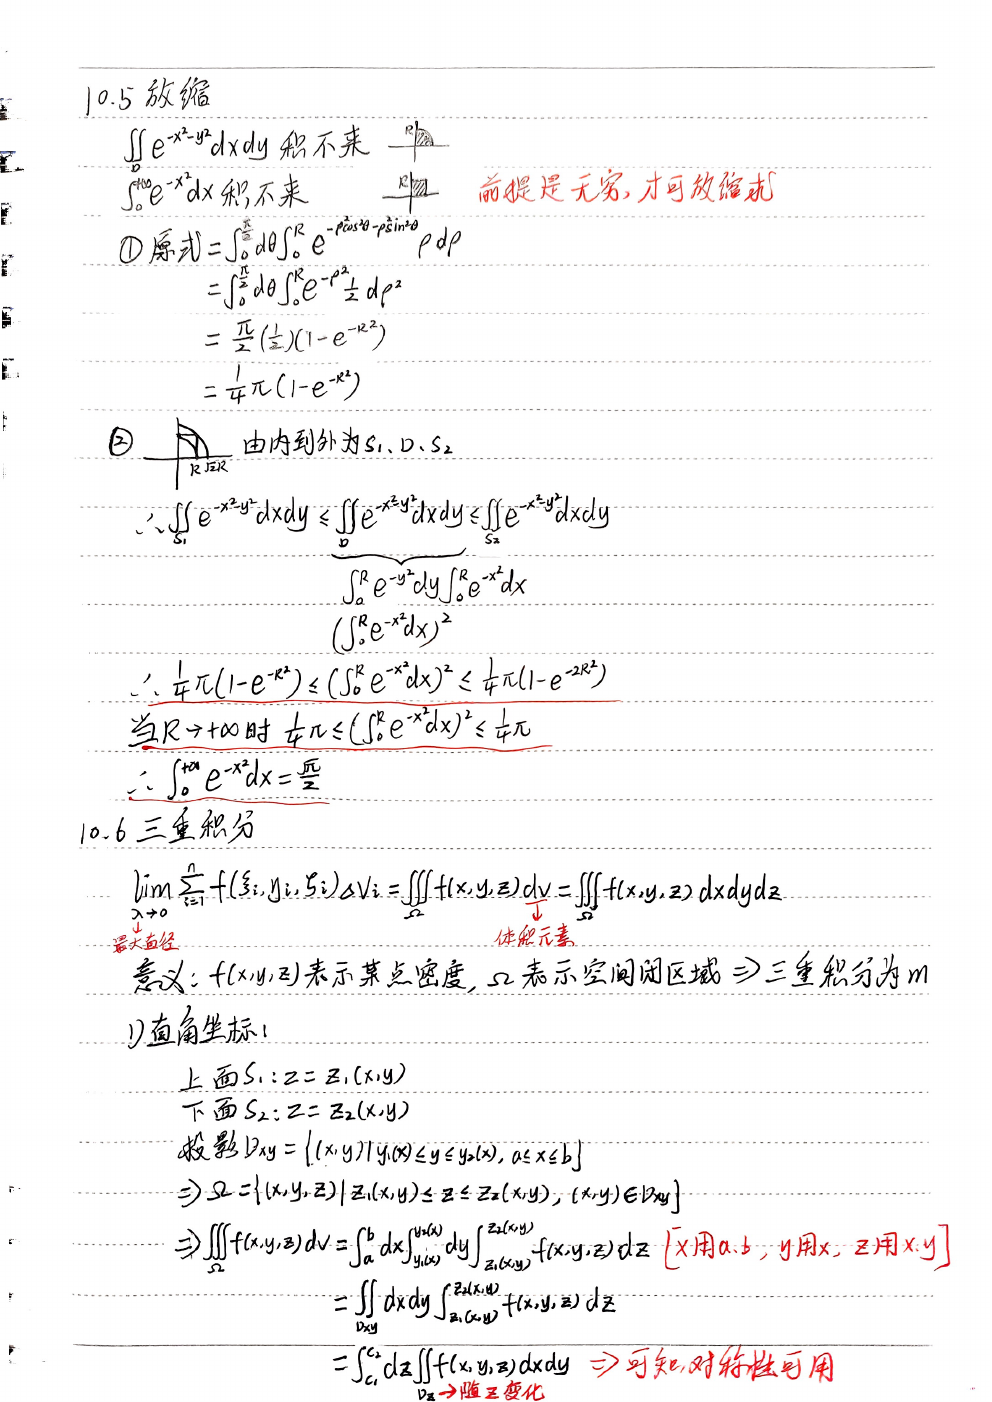 10.5 放缩
∬_D e^{-x²-y²}dxdy 积不来 R
∫_0^{+∞} e^{-x²}dx 积不来 R 前提是无穷,才可放缩求
① 原式=∫_0^{π/2}dθ∫_0^R e^{-ρ²cos²θ-ρ²sin²θ} ρdρ
=∫_0^{π/2}dθ∫_0^R e^{-ρ²} 1/2 dρ²
=π/2(1/2)(1-e^{-R²})
=1/4π(1-e^{-R²})
② R √2R 由内到外为S₁、D、S₂
∴∬_{S₁}e^{-x²-y²}dxdy≤∬_D e^{-x²-y²}dxdy≤∬_{S₂}e^{-x²-y²}dxdy
∫_0^R e^{-y²}dy∫_0^R e^{-x²}dx
(∫_0^R e^{-x²}dx)²
∴1/4π(1-e^{-R²})≤(∫_0^R e^{-x²}dx)²≤1/4π(1-e^{-2R²})
当R→+∞时 1/4π≤(∫_0^R e^{-x²}dx)²≤1/4π
∴∫_0^{+∞}e^{-x²}dx=√π/2
10.6 三重积分
lim_{λ→0} Σ_{i=1}^n f(ξi,yi,ζi)ΔVi=∭_Ω f(x,y,z)dv=∭_Ω f(x,y,z)dxdydz
↓最大直径 ↓体积元素
意义:f(x,y,z)表示某点密度,Ω表示空间闭区域⇒三重积分为m
1)直角坐标:
上面S₁:z=z₁(x,y)
下面S₂:z=z₂(x,y)
投影Dxy={(x,y)|y₁(x)≤y≤y₂(x), a≤x≤b}
⇒Ω={(x,y,z)|z₁(x,y)≤z≤z₂(x,y), (x,y)∈Dxy}
⇒∭_Ω f(x,y,z)dv=∫_a^b dx∫_{y₁(x)}^{y₂(x)}dy∫_{z₁(x,y)}^{z₂(x,y)}f(x,y,z)dz [x用a.b,y用x,z用x.y]
=∬_{Dxy}dxdy∫_{z₁(x,y)}^{z₂(x,y)}f(x,y,z)dz
=∫_{c₁}^{c₂}dz∬_{Dz}f(x,y,z)dxdy ⇒可知,对称性可用
→随z变化